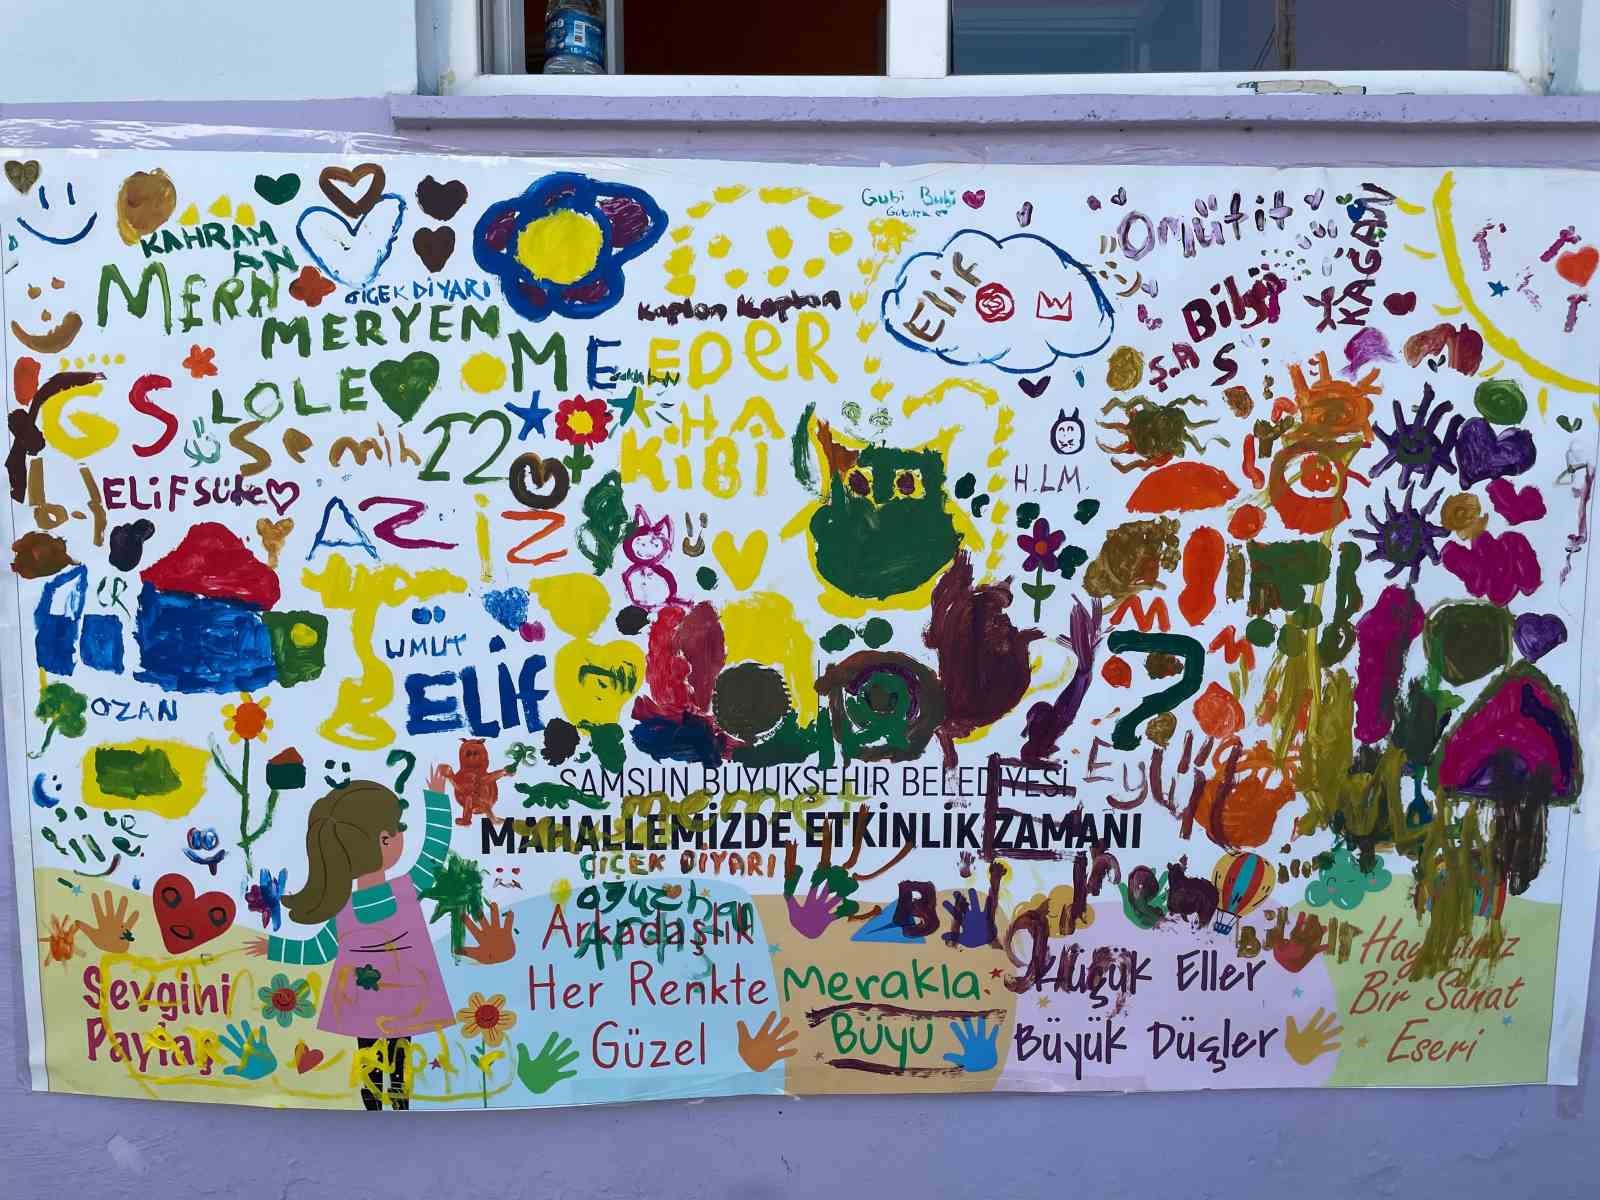 Gubi Bubi
KAHRAM
AN
MERA
ÇİÇEK DİYARI
MERYEM
Kaplan Kaplan
Elif
Omütit
KAĞAN
Bilgi
Ş.A S
M E EDER
GS LOLE
Semih 22
HA
KİBİ
H.L.M.
ELİF SÜDE
AZİZ
UMUT
ELİF
OZAN
Eylül
SAMSUN BÜYÜKŞEHİR BELEDİYESİ
MAHALLEMİZDE ETKİNLİK ZAMANI
ÇİÇEK DİYARI
oğuzhan
Sevgini
Paylaş
Arkadaşlık
Her Renkte
Güzel
Merakla
Büyü
Küçük Eller
Büyük Düşler
Bir Sanat
Eseri